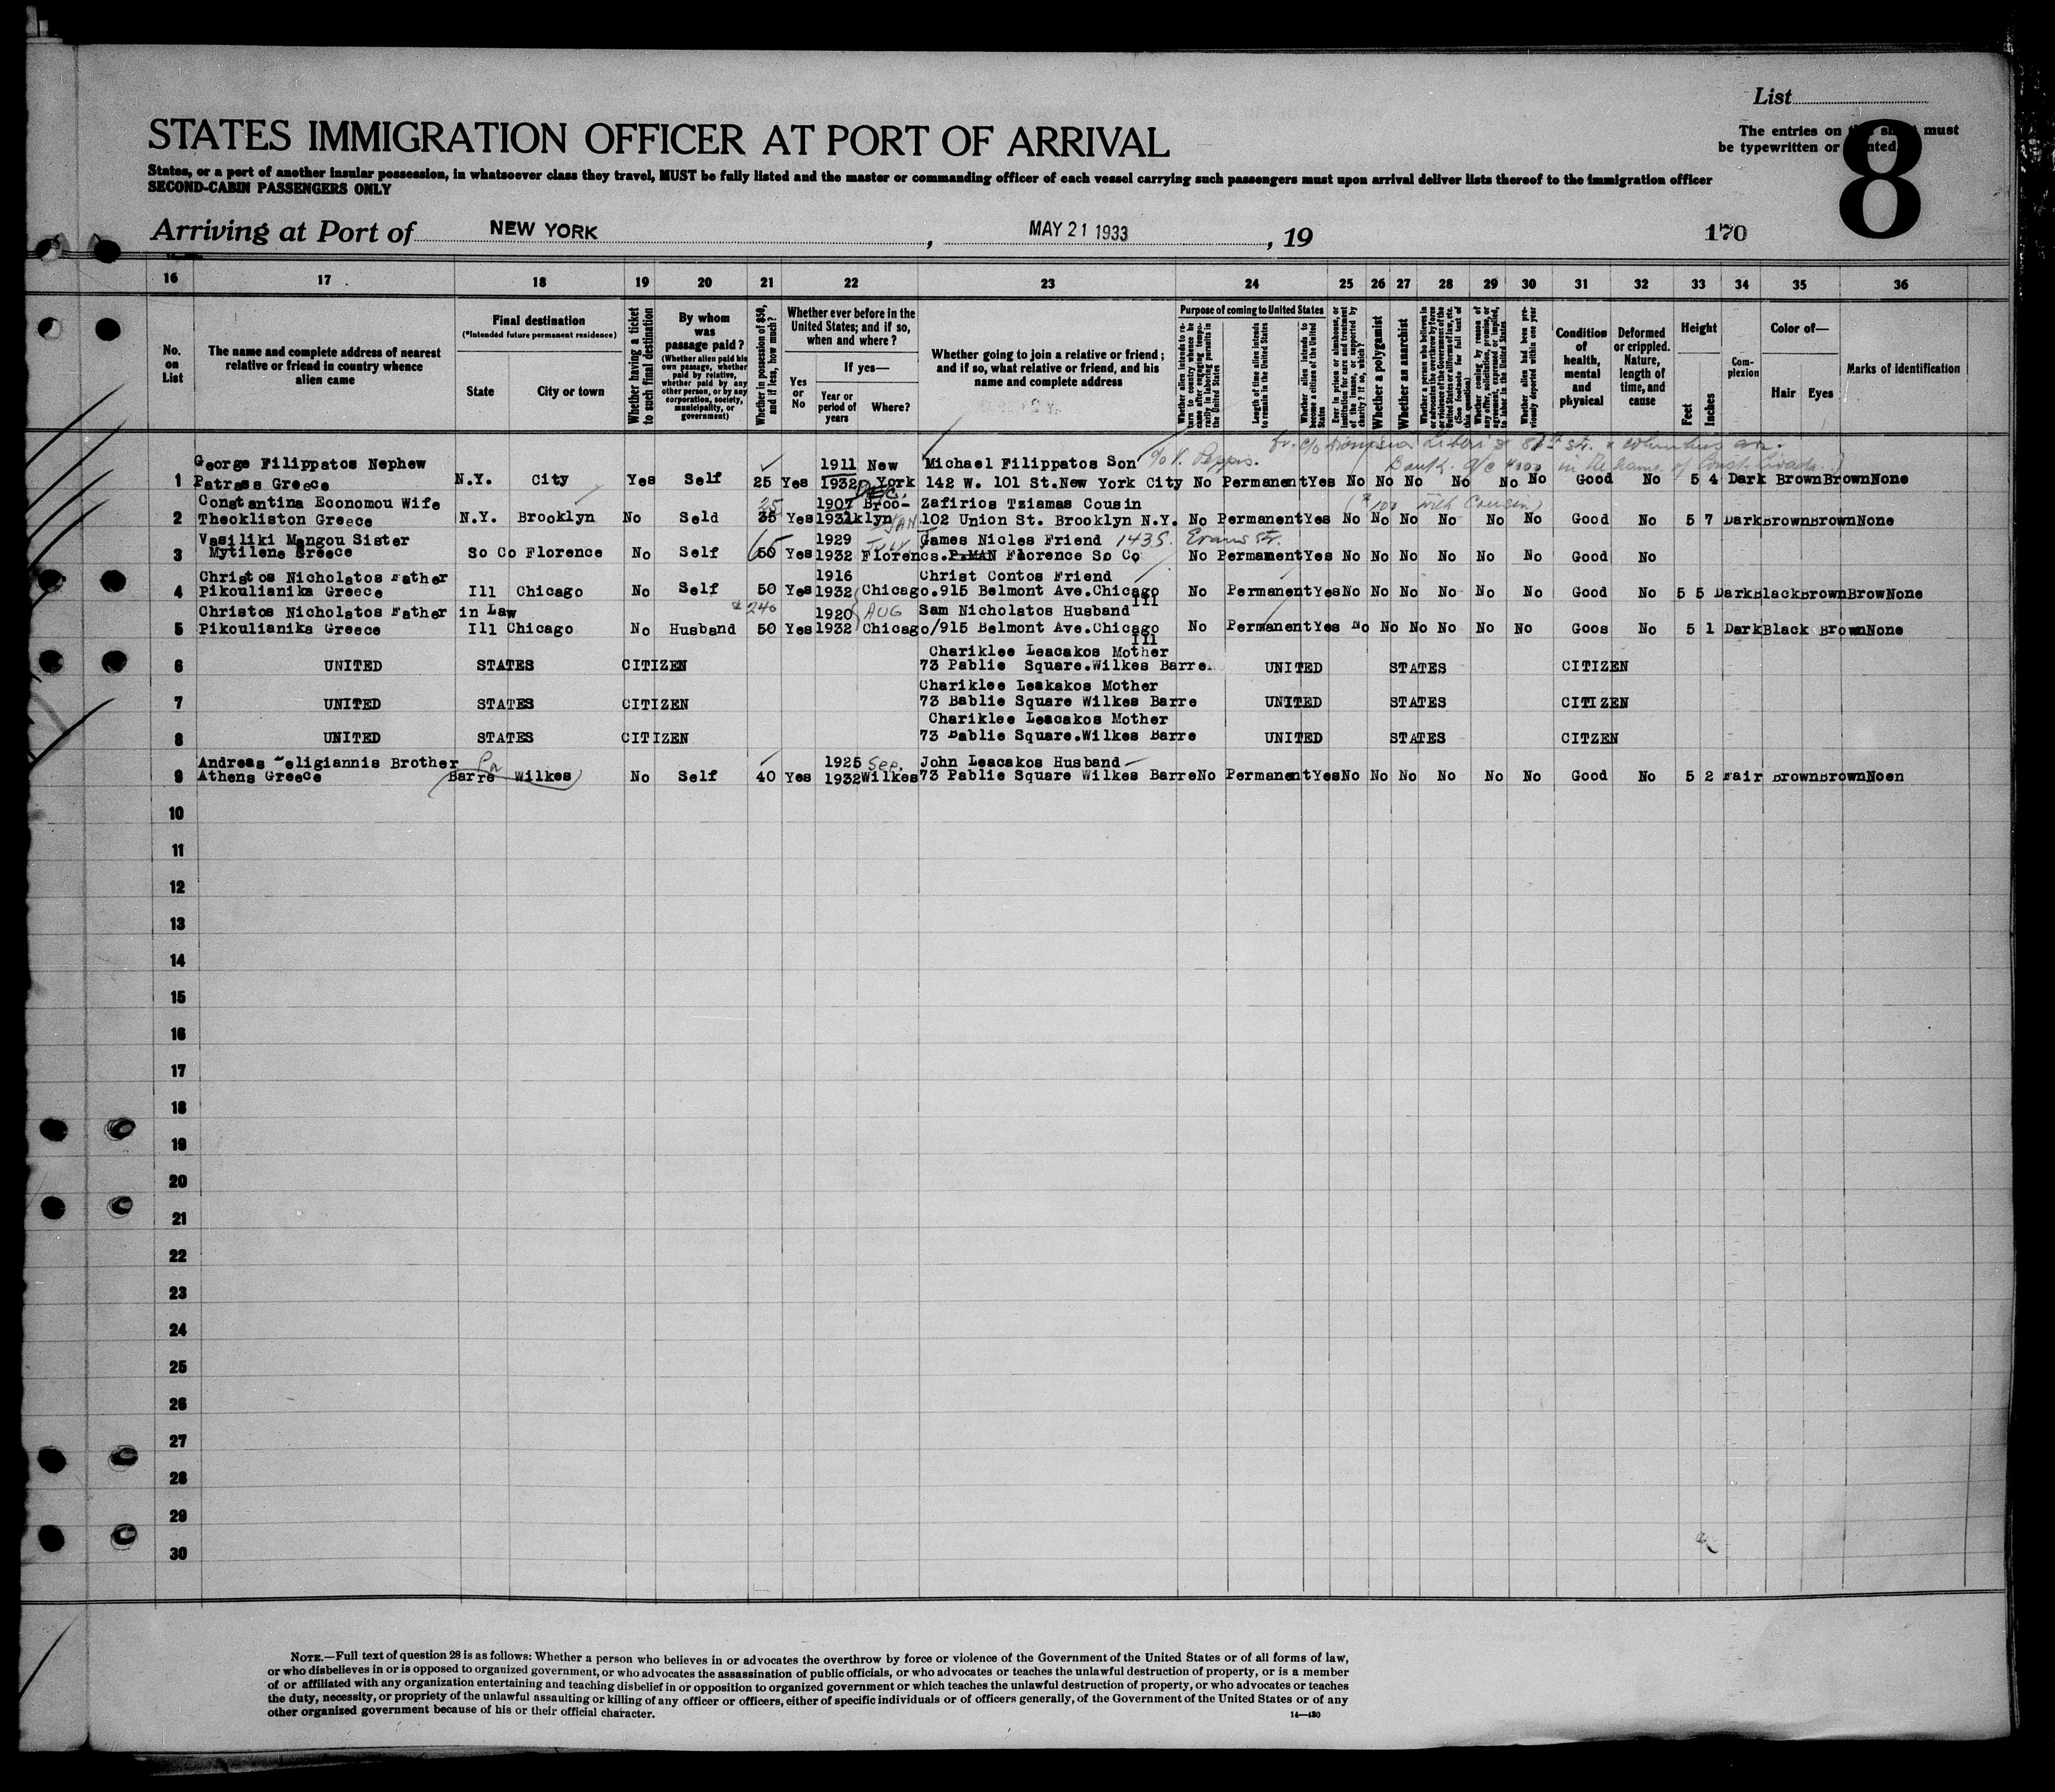 List
The entries on this sheet must
be typewritten or printed.
8
STATES IMMIGRATION OFFICER AT PORT OF ARRIVAL
States, or a port of another insular possession, in whatsoever class they travel, MUST be fully listed and the master or commanding officer of each vessel carrying such passengers must upon arrival deliver lists thereof to the immigration officer
SECOND-CABIN PASSENGERS ONLY
Arriving at Port of NEW YORK , MAY 21 1933 , 19 170
16 17 18 19 20 21 22 23 24 25 26 27 28 29 30 31 32 33 34 35 36
No. on List
The name and complete address of nearest relative or friend in country whence alien came
Final destination
(*Intended future permanent residence)
State City or town
Whether having a ticket to such final destination
By whom was passage paid?
(Whether alien paid his own passage, whether paid by relative, whether paid by any other person, or by any corporation, society, municipality, or government)
Whether in possession of $50, and if less, how much?
Whether ever before in the United States; and if so, when and where?
Yes or No
If yes—
Year or period of years Where?
Whether going to join a relative or friend; and if so, what relative or friend, and his name and complete address
Purpose of coming to United States
Whether alien intends to return to country whence he came after engaging temporarily in laboring pursuits in the United States
Length of time alien intends to remain in the United States
Whether alien intends to become a citizen of the United States
Ever in prison or almshouse, or institution for care and treatment of the insane, or supported by charity? If so, which?
Whether a polygamist
Whether an anarchist
Whether a person who believes in or advocates the overthrow by force or violence of the Government of the United States or all forms of law, etc. (See footnote for full text of this question)
Whether coming by reason of any offer, solicitation, promise, or agreement, expressed or implied, to labor in the United States
Whether alien had been previously deported within one year
Condition of health, mental and physical
Deformed or crippled. Nature, length of time, and cause
Height
Feet Inches
Complexion
Color of—
Hair Eyes
Marks of identification
81st St. & Columbus av.
George Filippatos Nephew 1911 New Michael Filippatos Son c/o Peppis. Bank a/c 4000 in the name of Const. Livada
1 Patrass Greece N.Y. City Yes Self 25 Yes 1932 York 142 W. 101 St.New York City No Permanent Yes No No No No No No Good No 5 4 Dark Brown Brown None
DEC.
Constantina Economou Wife 25 1907 Broo- Zafirios Tziamas Cousin ($100 with Cousin)
2 Theokliston Greece N.Y. Brooklyn No Seld 35 Yes 1931 klyn JAN. 102 Union St. Brooklyn N.Y. No Permanent Yes No No No No No No Good No 5 7 Dark Brown Brown None
Vasiliki Mangou Sister 65 1929 JULY James Nicles Friend 143 S. Evans St.
3 Mytilene Greece So Co Florence No Self 50 Yes 1932 Florenc s. P.MAN Florence So Co No Permanent Yes No No No No No No Good No
Christos Nicholatos Father 1916 Christ Contos Friend
4 Pikoulianika Greece Ill Chicago No Self 50 Yes 1932 Chicago.915 Belmont Ave.Chicago No Permanent Yes No No No No No No Good No 5 5 Dark Black Brown Brow None
Ill
Christos Nicholatos Father in Law $240 1920 AUG Sam Nicholatos Husband
5 Pikoulianika Greece Ill Chicago No Husband 50 Yes 1932 Chicago/915 Belmont Ave.Chicago No Permanent Yes No No No No No No Goos No 5 1 Dark Black Brown None
Ill
Chariklee Leacakos Mother
6 UNITED STATES CITIZEN 73 Pablie Square.Wilkes Barre. UNITED STATES CITIZEN
Chariklee Leakakos Mother
7 UNITED STATES CITIZEN 73 Bablie Square Wilkes Barre UNITED STATES CITIZEN
Chariklee Leacakos Mother
8 UNITED STATES CITIZEN 73 Bablie Square.Wilkes Barre UNITED STATES CITZEN
Andreas Deligiannis Brother Pa 1925 Sep. John Leacakos Husband
9 Athens Greece Barre Wilkes No Self 40 Yes 1932 Wilkes 73 Pablie Square Wilkes Barre No Permanent Yes No No No No No No Good No 5 2 Fair Brown Brown Noen
10
11
12
13
14
15
16
17
18
19
20
21
22
23
24
25
26
27
28
29
30
NOTE.—Full text of question 28 is as follows: Whether a person who believes in or advocates the overthrow by force or violence of the Government of the United States or of all forms of law,
or who disbelieves in or is opposed to organized government, or who advocates the assassination of public officials, or who advocates or teaches the unlawful destruction of property, or is a member
of or affiliated with any organization entertaining and teaching disbelief in or opposition to organized government or which teaches the unlawful destruction of property, or who advocates or teaches
the duty, necessity, or propriety of the unlawful assaulting or killing of any officer or officers, either of specific individuals or of officers generally, of the Government of the United States or of any
other organized government because of his or their official character.
14—430